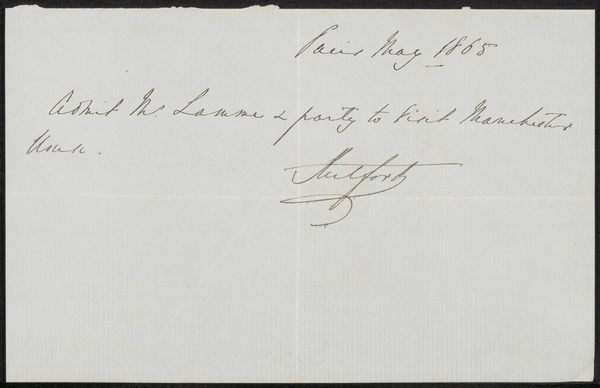 Paris May 1865
Admit Mr. Lamme & party to visit Manchester
House.